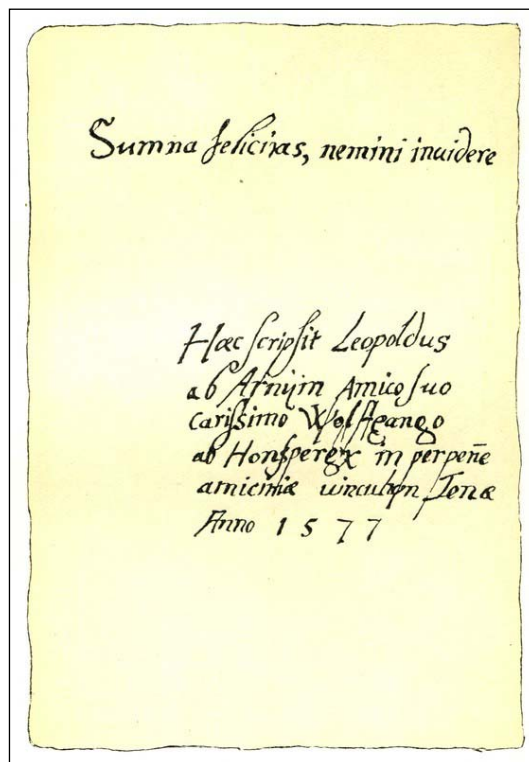 Summa felicitas, nemini inuidere
Hæc scripsit Leopoldus
ab Arnÿm Amico suo
Carissimo Wolffgango
ab Honsperg in perpetuæ
amicitiæ uinculum Jenæ
Anno 1577